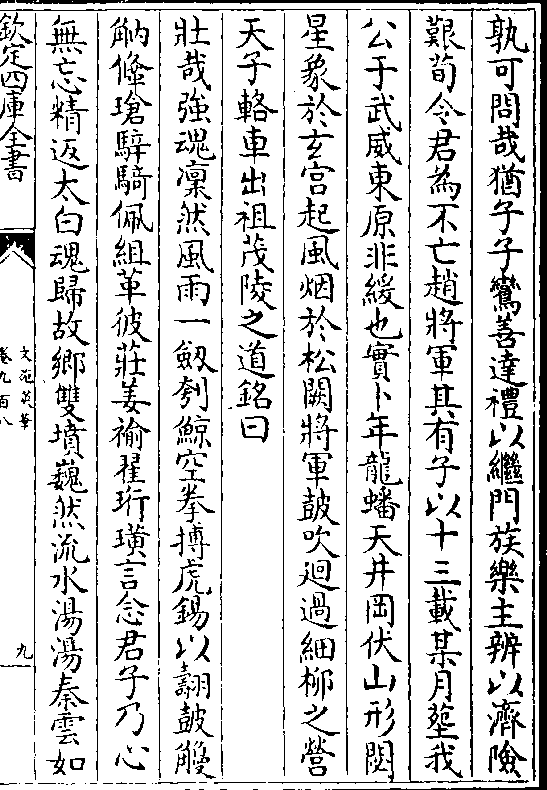 孰可問哉猶子子鸞善達禮以繼門族樂主辨以濟險
艱荀令君為不亡趙將軍其有子以十三載某月塟我
公于武威東原非緩也實卜年龍蟠天井岡伏山形閟
星象於玄宮起風烟於松闕將軍鼓吹迴過細栁之營
天子輅車出祖茂陵之道銘曰
壯哉強魂凜然風雨一劔刳鯨空拳搏虎錫以翿鼔觼
軜儵瑲騂騎佩組革彼莊姜褕翟珩璜言念君子乃心
無忘精返太白魂歸故鄉雙墳巍然流水湯湯秦雲如
欽定四庫全書
文苑英華
卷九百八
九